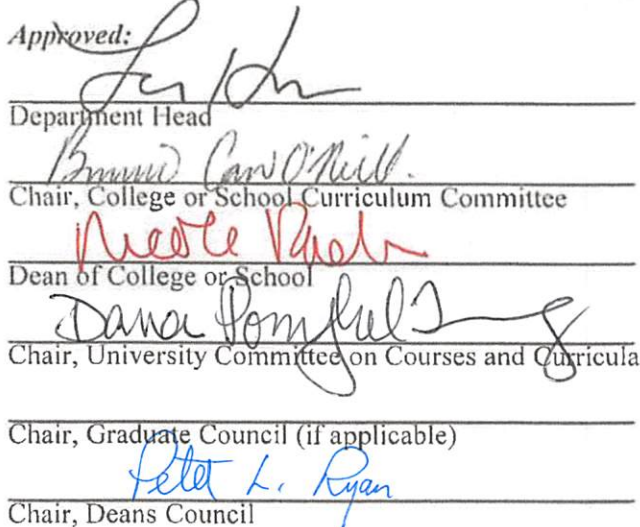 Approved:
Department Head
O'Neill.
Chair, College or School Curriculum Committee
Nicole
Dean of College or School
Dana
Chair, University Committee on Courses and Curricula
Chair, Graduate Council (if applicable)
Peter L. Ryan
Chair, Deans Council